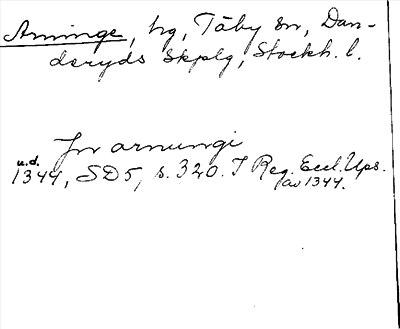 Arninge, hg, Täby sn, Dan-
deryds skplg, Stockh. l.
Jn arnungi
u.d.
1344, SD5, s. 320. I Reg. Eccl. Ups.
av 1344.